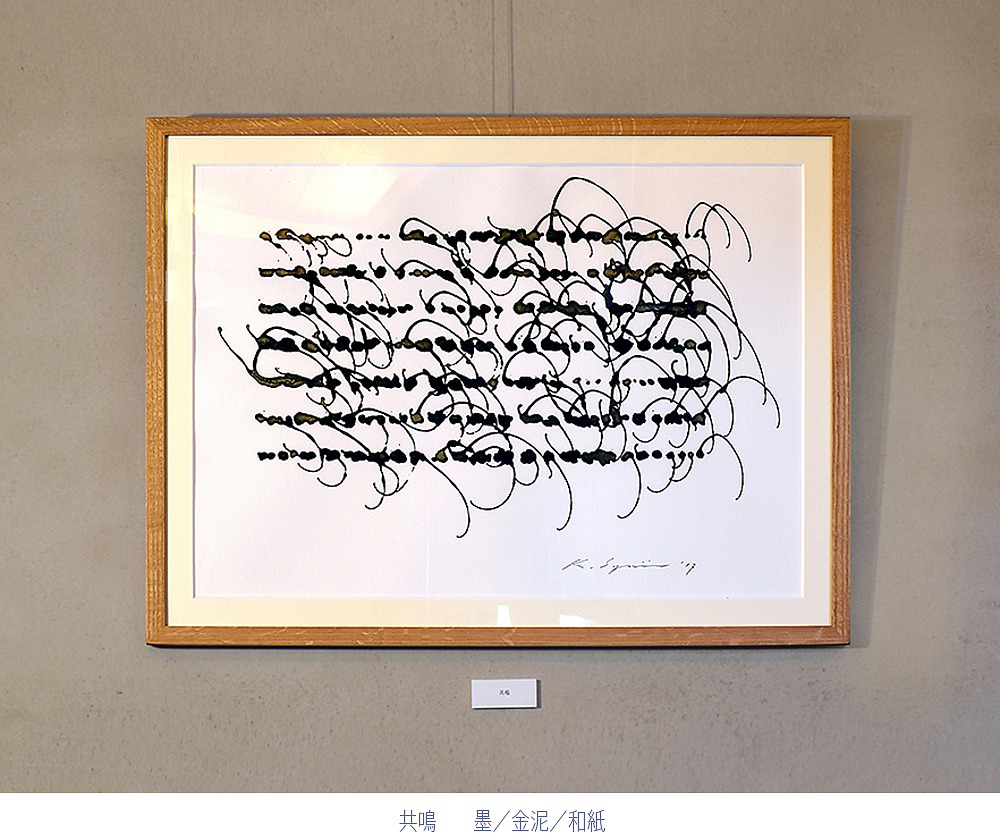 共鳴
共鳴　　墨／金泥／和紙